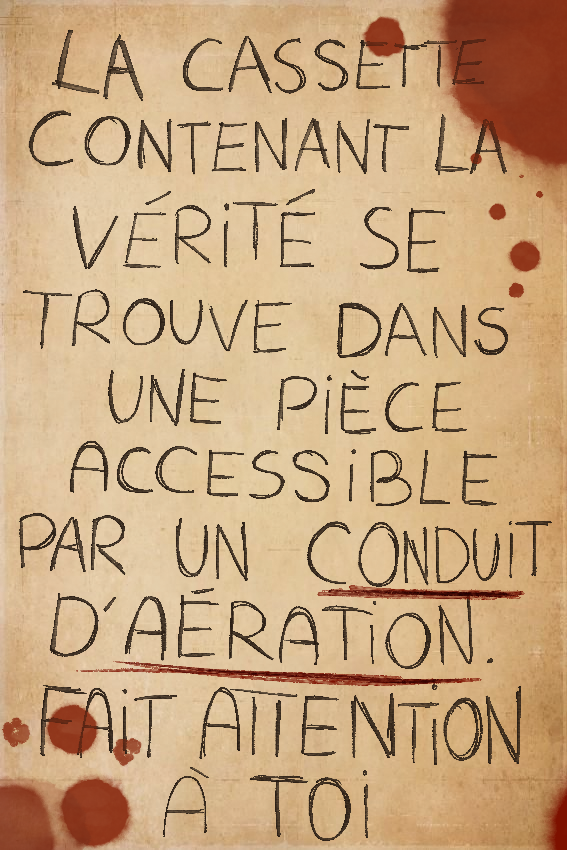 LA CASSETTE
CONTENANT LA
VÉRiTÉ SE
TROUVE DANS
UNE PiÈCE
ACCESSiBLE
PAR UN CONDUiT
D'AÉRATiON.
FAiT ATTENTiON
À TOi